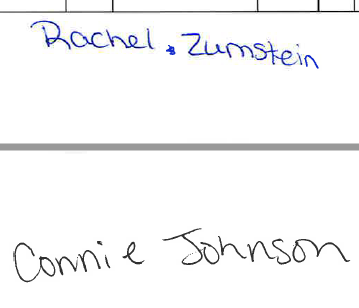 Rachel . Zumstein
Connie Johnson